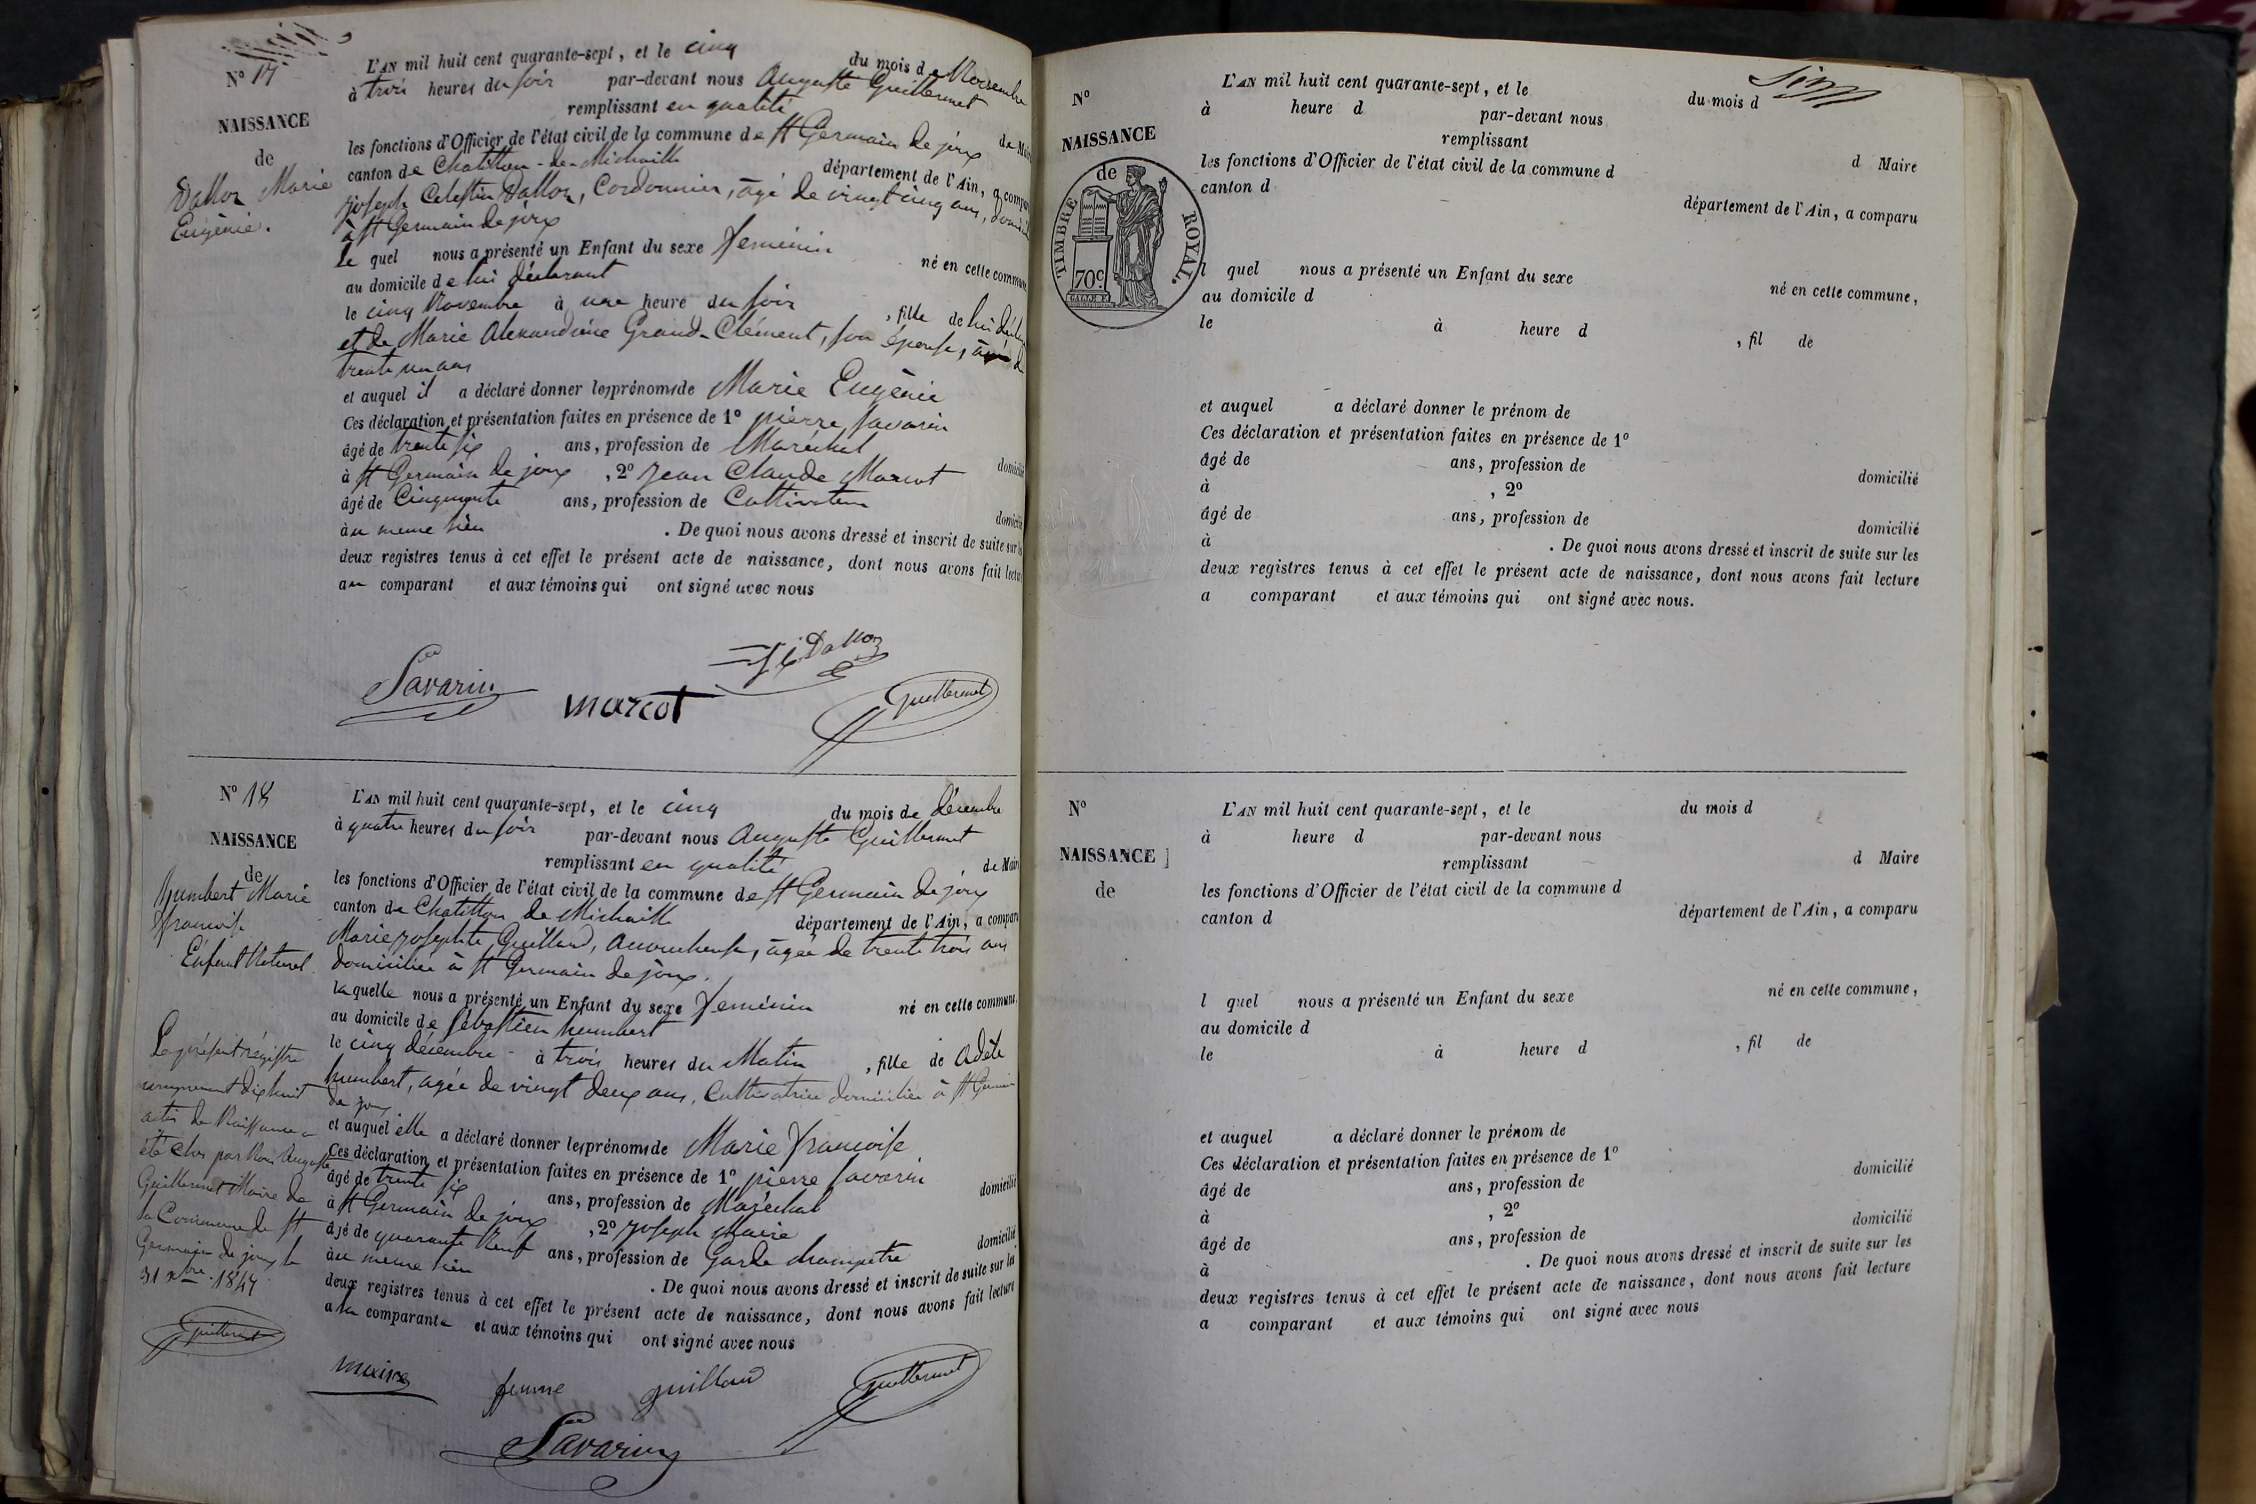 N° 17
NAISSANCE
de
Dalloz Marie
Eugénie.
L'AN mil huit cent quarante-sept, et le cinq du mois de Novembre
à trois heures du soir par-devant nous Auguste Guillermet
remplissant en qualité de Maire
les fonctions d'Officier de l'état civil de la commune de St Germain de joux
canton de Chatillon-de-Michaille département de l'Ain, a comparu
joseph Celestin Dalloz, Cordonnier, âgé de vingt cinq ans, domicilié
à St Germain de joux
le quel nous a présenté un Enfant du sexe feminin né en cette commune
au domicile de lui déclarant
le cinq Novembre à une heure du soir , fille de lui déclarant
et de Marie Alexandrine Grand-Clément, son épouse, âgée de
trente un ans
et auquel il a déclaré donner les prénoms de Marie Eugénie
Ces déclaration et présentation faites en présence de 1° pierre Savarin
âgé de trente six ans, profession de Maréchal domicilié
à St Germain de joux , 2° jean Claude Marcot
âgé de Cinquante ans, profession de Cultivateur domicilié
au meme lieu . De quoi nous avons dressé et inscrit de suite sur les
deux registres tenus à cet effet le présent acte de naissance, dont nous avons fait lecture
au comparant et aux témoins qui ont signé avec nous
Dalloz
Savarin
marcot
Guillermet
N° 18
NAISSANCE
de
humbert Marie
francoise
Enfant Naturel
L'AN mil huit cent quarante-sept, et le cinq du mois de décembre
à quatre heures du soir par-devant nous Auguste Guillermet
remplissant en qualité de Maire
les fonctions d'Officier de l'état civil de la commune de St Germain de joux
canton de Chatillon de Michaille département de l'Ain, a comparu
Marie josephte Guilland, accoucheuse, âgée de trente trois ans
domiciliée à St Germain de joux.
la quelle nous a présenté un Enfant du sexe feminin né en cette commune,
au domicile de Sébastien humbert
le cinq décembre à trois heures du Matin , fille de Adèle
humbert, agée de vingt deux ans, Cultivatrice domiciliée à St Germain
de joux
et auquel elle a déclaré donner les prénoms de Marie francoise
Ces déclaration et présentation faites en présence de 1° pierre Savarin
âgé de trente six ans, profession de Maréchal domicilié
à St Germain de joux , 2° joseph Maire
âgé de quarante neuf ans, profession de Garde champetre domicilié
au meme lieu . De quoi nous avons dressé et inscrit de suite sur les
deux registres tenus à cet effet le présent acte de naissance, dont nous avons fait lecture
a la comparante et aux témoins qui ont signé avec nous
Le présent régistre
comprenant dix huit
actes de Naissance a
été clos par Nous Auguste
Guillermet Maire de
la Commune de St
Germain de joux le
31 Xbre 1847
Guillermet
maire
femme guilland
Guillermet
Savarin
N°
NAISSANCE
de
TIMBRE ROYAL.
70c
L'AN mil huit cent quarante-sept, et le du mois d
à heure d par-devant nous
remplissant d Maire
les fonctions d'Officier de l'état civil de la commune d
canton d département de l'Ain, a comparu
l quel nous a présenté un Enfant du sexe né en cette commune,
au domicile d
le à heure d , fil de
et auquel a déclaré donner le prénom de
Ces déclaration et présentation faites en présence de 1°
âgé de ans, profession de domicilié
à , 2°
âgé de ans, profession de domicilié
à . De quoi nous avons dressé et inscrit de suite sur les
deux registres tenus à cet effet le présent acte de naissance, dont nous avons fait lecture
a comparant et aux témoins qui ont signé avec nous.
N°
NAISSANCE
de
L'AN mil huit cent quarante-sept, et le du mois d
à heure d par-devant nous
remplissant d Maire
les fonctions d'Officier de l'état civil de la commune d
canton d département de l'Ain, a comparu
l quel nous a présenté un Enfant du sexe né en cette commune,
au domicile d
le à heure d , fil de
et auquel a déclaré donner le prénom de
Ces déclaration et présentation faites en présence de 1°
âgé de ans, profession de domicilié
à , 2°
âgé de ans, profession de domicilié
à . De quoi nous avons dressé et inscrit de suite sur les
deux registres tenus à cet effet le présent acte de naissance, dont nous avons fait lecture
a comparant et aux témoins qui ont signé avec nous